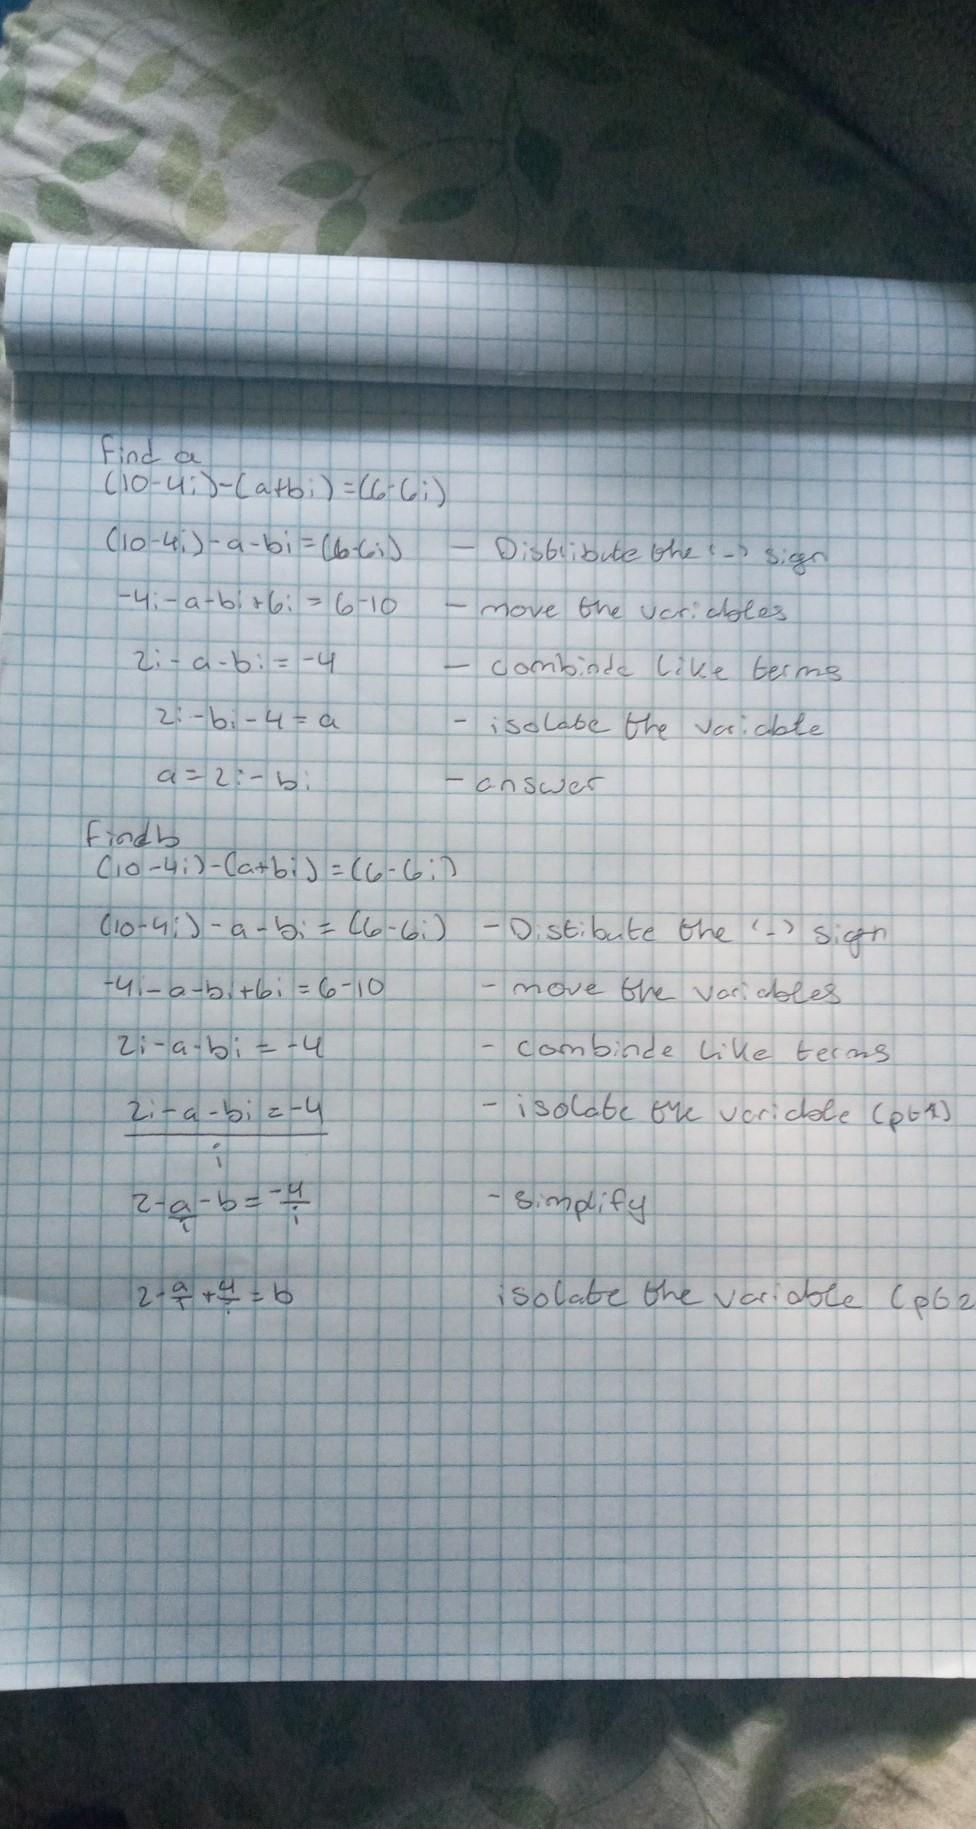 Find a
(10-4i)-(a+bi)=(6-6i)
(10-4i)-a-bi=(6-6i) - Distribute the (-) sign
-4i-a-bi+6i=6-10 - move the variables
2i-a-bi=-4 - combinde like terms
2i-bi-4=a - isolate the variable
a=2i-bi - answer
Find b
(10-4i)-(a+bi)=(6-6i)
(10-4i)-a-bi=(6-6i) - Distibute the (-) sign
-4i-a-bi+6i=6-10 - move the variables
2i-a-bi=-4 - combinde like terms
2i-a-bi=-4 - isolate the variable (pt1)
i
2-a/i-b=-4/i - simplify
2-a/i+4/i=b isolate the variable (pt2